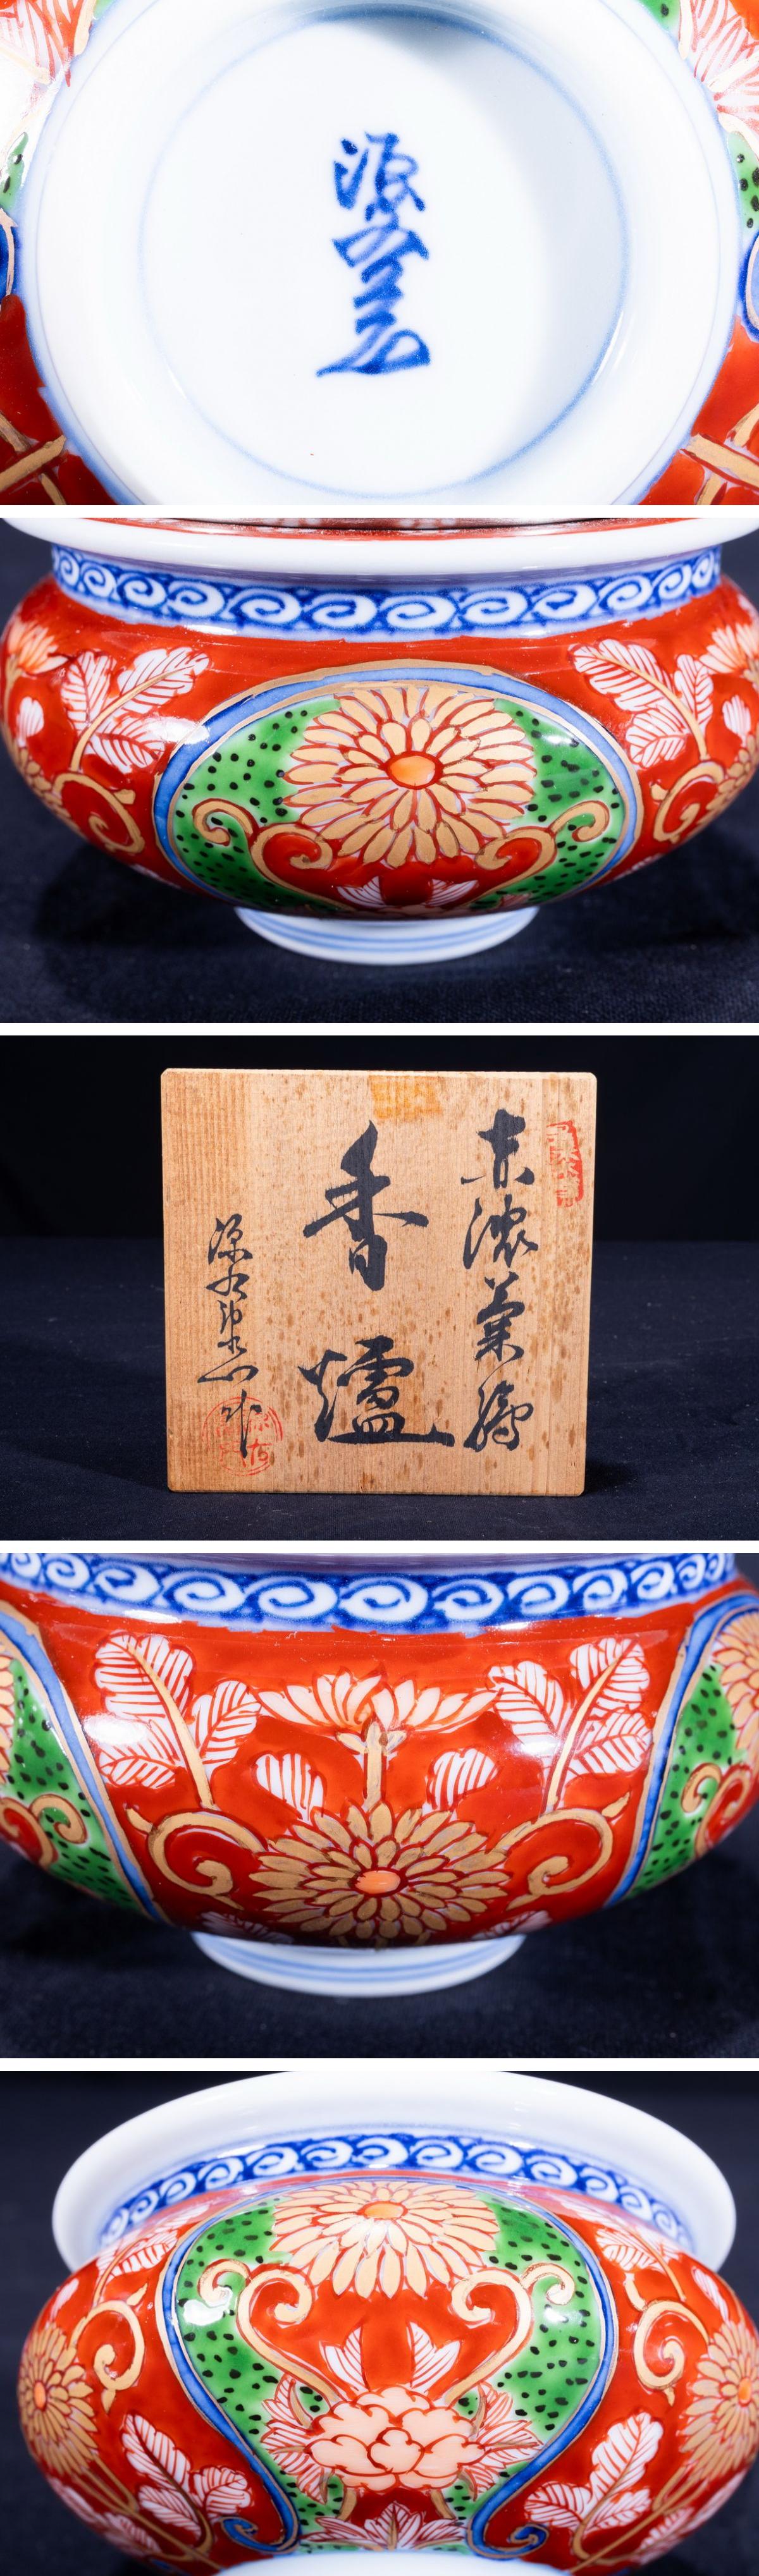 源右衛門
赤濃菊
香爐
源右衛門作